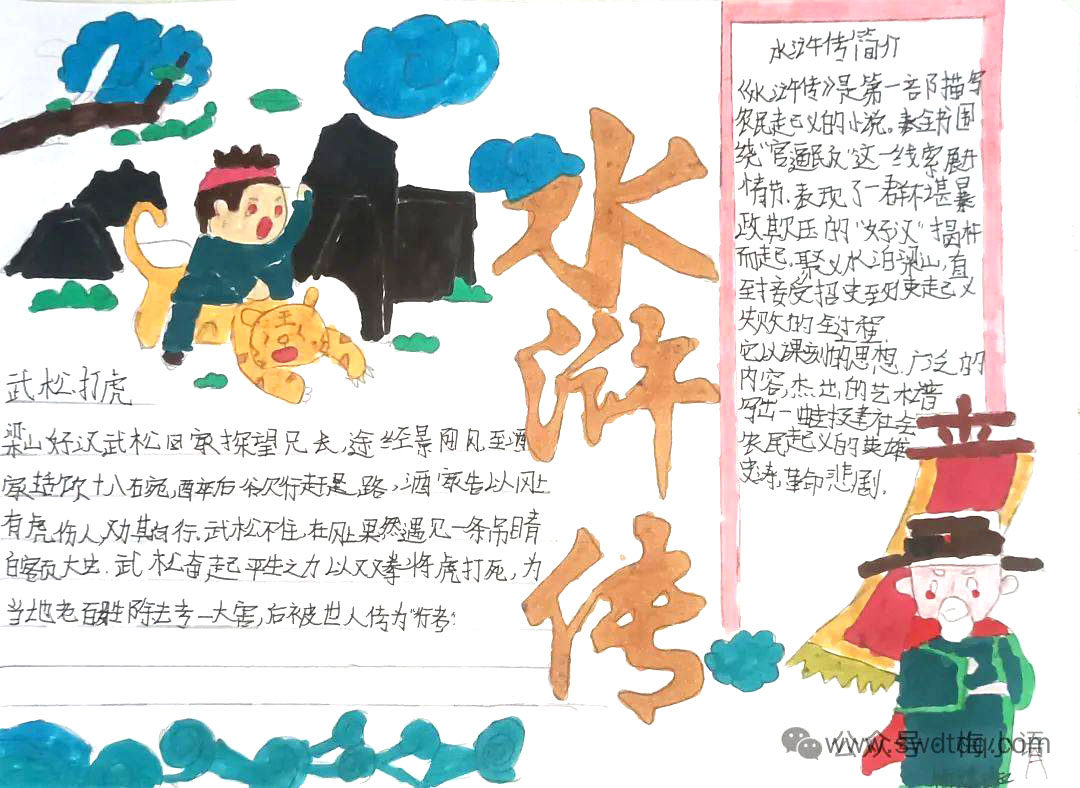 水浒传
水浒传简介
《水浒传》是第一部描写
农民起义的小说。全书围
绕"官逼民反"这一线索展开
情节,表现了一群不堪暴
政欺压的"好汉"揭杆
而起,聚义水泊梁山,直
至接受招安至结束起义
失败的全过程.
它以深刻的思想,广泛的
内容,杰出的艺术谱
写出一建社会
农民起义的英雄
史诗,革命悲剧.
武松打虎
梁山好汉武松回家探望兄长,途经景阳冈,至酒
家连饮十八碗,醉后欲行赶路,酒家告以冈上
有虎伤人,劝其勿行.武松不住,在冈上果然遇见一条吊睛
白额大虫.武松奋起平生之力以双拳将虎打死,为
当地老百姓除去一大害,后被世人传为"行者"
王
公众号 梅小语
www.swdtdq.com